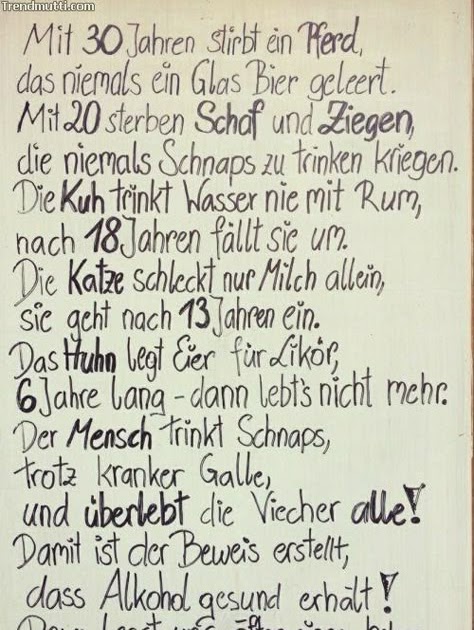 Trendmutti.com
Mit 30 Jahren stirbt ein Pferd,
das niemals ein Glas Bier geleert.
Mit 20 sterben Schaf und Ziegen,
die niemals Schnaps zu trinken kriegen.
Die Kuh trinkt Wasser nie mit Rum,
nach 18 Jahren fällt sie um.
Die Katze schleckt nur Milch allein,
sie geht nach 13 Jahren ein.
Das Huhn legt Eier für Likör,
6 Jahre lang - dann lebt's nicht mehr.
Der Mensch trinkt Schnaps,
trotz kranker Galle,
und überlebt die Viecher alle!
Damit ist der Beweis erstellt,
dass Alkohol gesund erhält!